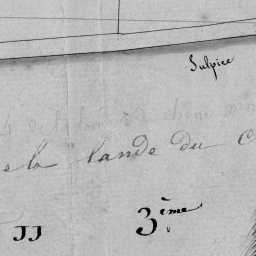 Sulpice
e la lande du C
JJ 3.ème